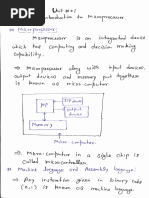 Unit #01
Introduction to Microprocessor
Microprocessor:
Microprocessor is an integrated device
which has computing and decision making
capability.
⇒ Microprocessor along with input devices,
output devices and memory put together
is known as micro computer.
MP
I/P device
O/P device
Memory
Micro computer
⇒ Micro computer in a single chip is
called microcontroller.
Machine language and Assembly language:
⇒ Any instruction given in binary code
(0,1) is known as machine language.